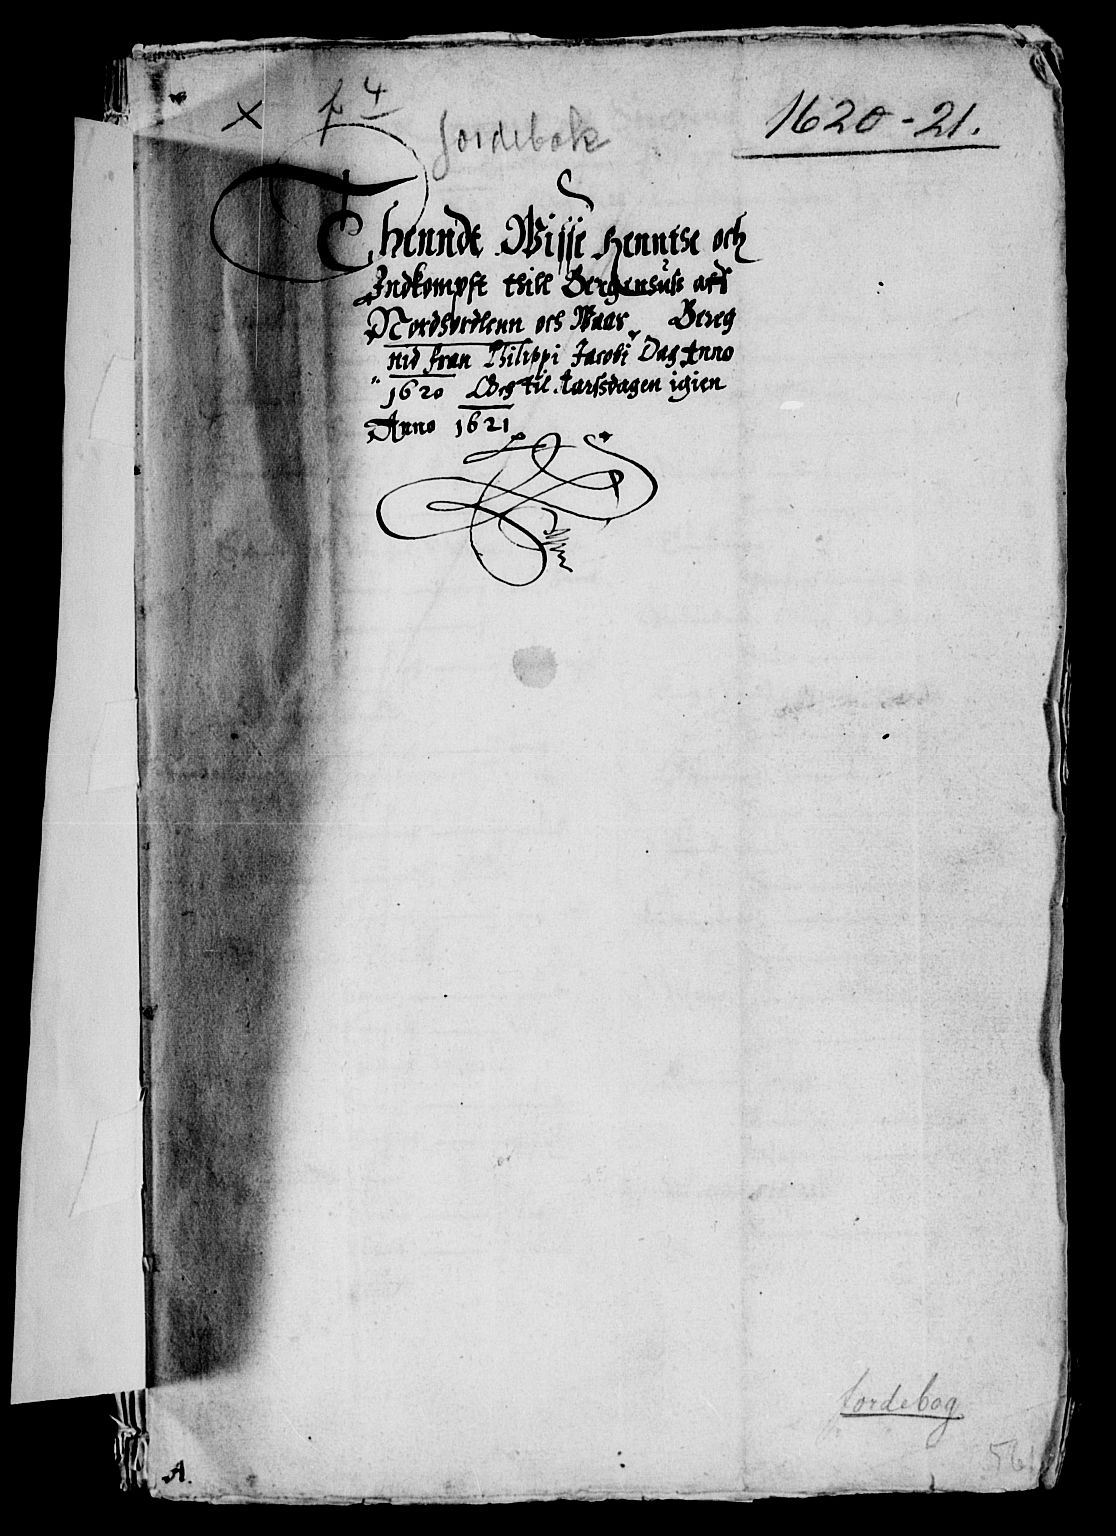 x 4
Jordebok
1620-21.
Thenndt Wisse Henntse och
Indkompst thill Bergenhuss aff
Nordhordlenn och Waar, Bereg
nid fran Philippi Jacobi Dag Anno
1620 Och til Aarssdagen igien
Anno 1621
Jordebog
561
A.